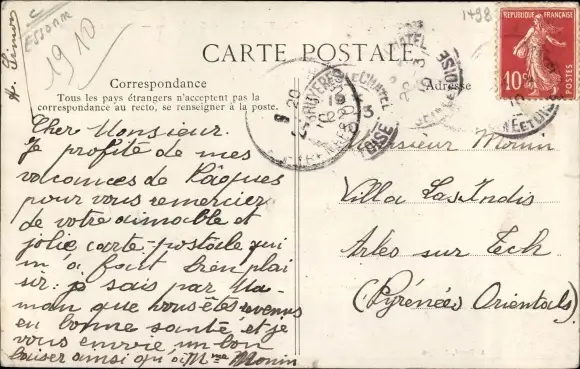 1910
1498
CARTE POSTALE
REPUBLIQUE FRANÇAISE
10c
POSTES
Correspondance
Tous les pays étrangers n'acceptent pas la
correspondance au recto, se renseigner à la poste.
Adresse
Cher Monsieur.
Je profite de mes
vacances de Pâques
pour vous remercier
de votre aimable et
jolie carte-postale qui
m'a fait bien plai
sir: je sais par Ma-
man que vous êtes revenus
en bonne santé et je
vous envie un bon
baiser ainsi qu'à Mme Monin
Monsieur Monin
Villa Las Indis
Arles sur Tech
(Pyrénées Orientals)